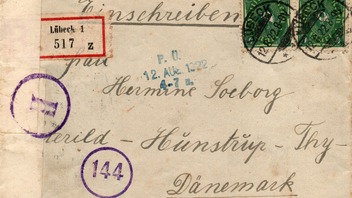 Einschreiben
Lübeck 1
517 z
P. Ü.
12. AUG. 1922
4-7 N.
Hermine Soeborg
Hunstrup-Thy-
144
Dänemark